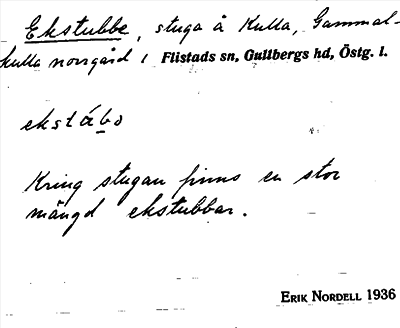 Ekstubbe, stuga å Kulla, Gammal-
kulla norrgård i Flistads sn, Gullbergs hd, Östg. l.
ekstábo
Kring stugan finns en stor
mängd ekstubbar.
ERIK NORDELL 1936